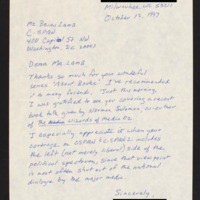 Milwaukee, WI 53211
October 12, 1997
Mr. Brian Lamb
C-SPAN
400 Capitol St. NW
Washington, DC 20001
Dear Mr. Lamb,
Thanks so much for your wonderful
series "About Books." I've recommended
it to many friends. Just this morning,
I was gratified to see you covering a recent
book talk given by Norman Solomon, co-author
of Wizards of Media Oz.
I especially appreciate it when your
coverage on CSPAN & CSPAN2 includes
the left (not merely liberal) side of the
political spectrum, since that viewpoint
is most often shut out of the national
dialogue by the major media.
Sincerely,